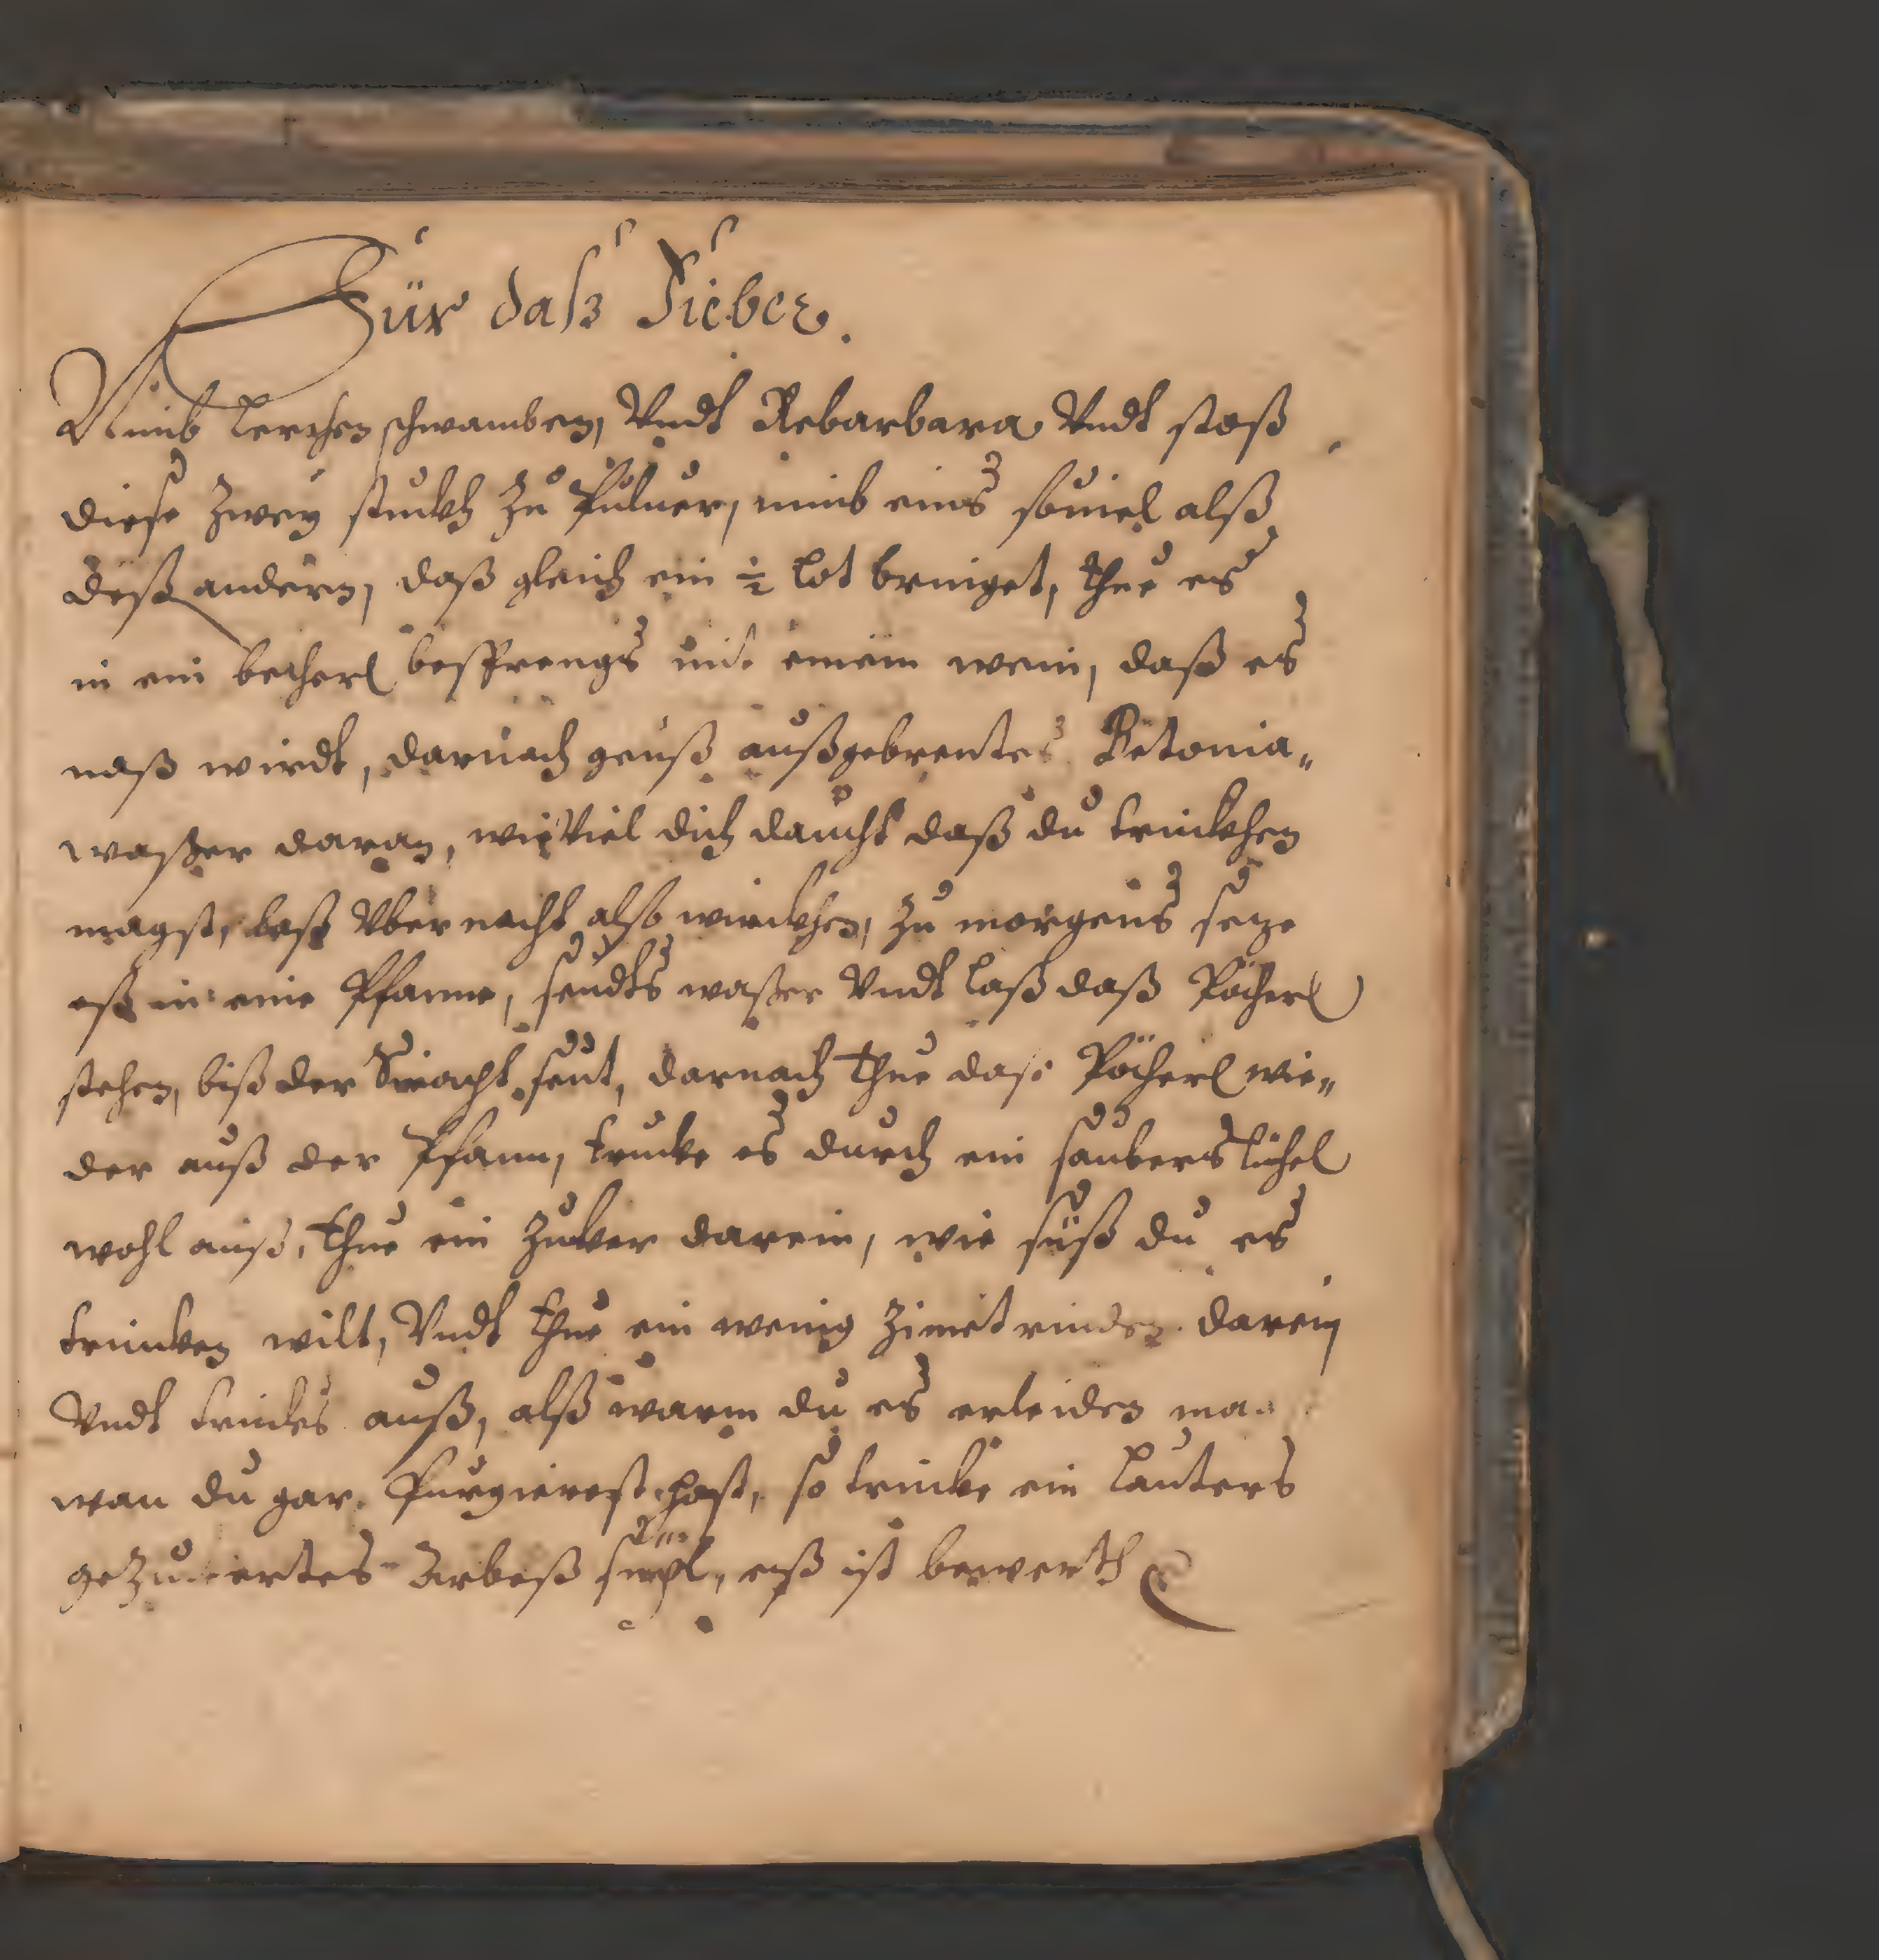 Für daß Fieber.
Nimb Lerchen schwamben, Vndt Rebarbara Vndt stoß
diese zwey stuckh zu Puluer, nimb eins souiel alß
deß andern, daß gleich ein ½ lot bringet, thue es
in ein becherl besprengs mit einem wein, daß es
naß wirdt, darnach geuß außgebrentes Betonia„
waßer daran, wie Viel dich daucht daß du trinckhen
magst, laß Vber nacht also weickhen, zu morgens seze
eß in eine Pfanne, seudts waßer Vndt laß daß Pöcherl
stehen, biß der seut, darnach thue daß Pöcherl wie„
der auß der Pfann, trucke es durch ein saubers tüchel
wohl auß, thue ein Zucker darein, wie süß du es
trincken wilt, Vndt thue ein wenig Zimet rinden darein
Vndt trinckes auß, alß warm du es erleiden
wan du gar Purgierest hast, so trincke ein lauters
gezuckertes Arbeß süpl, eß ist bewerth